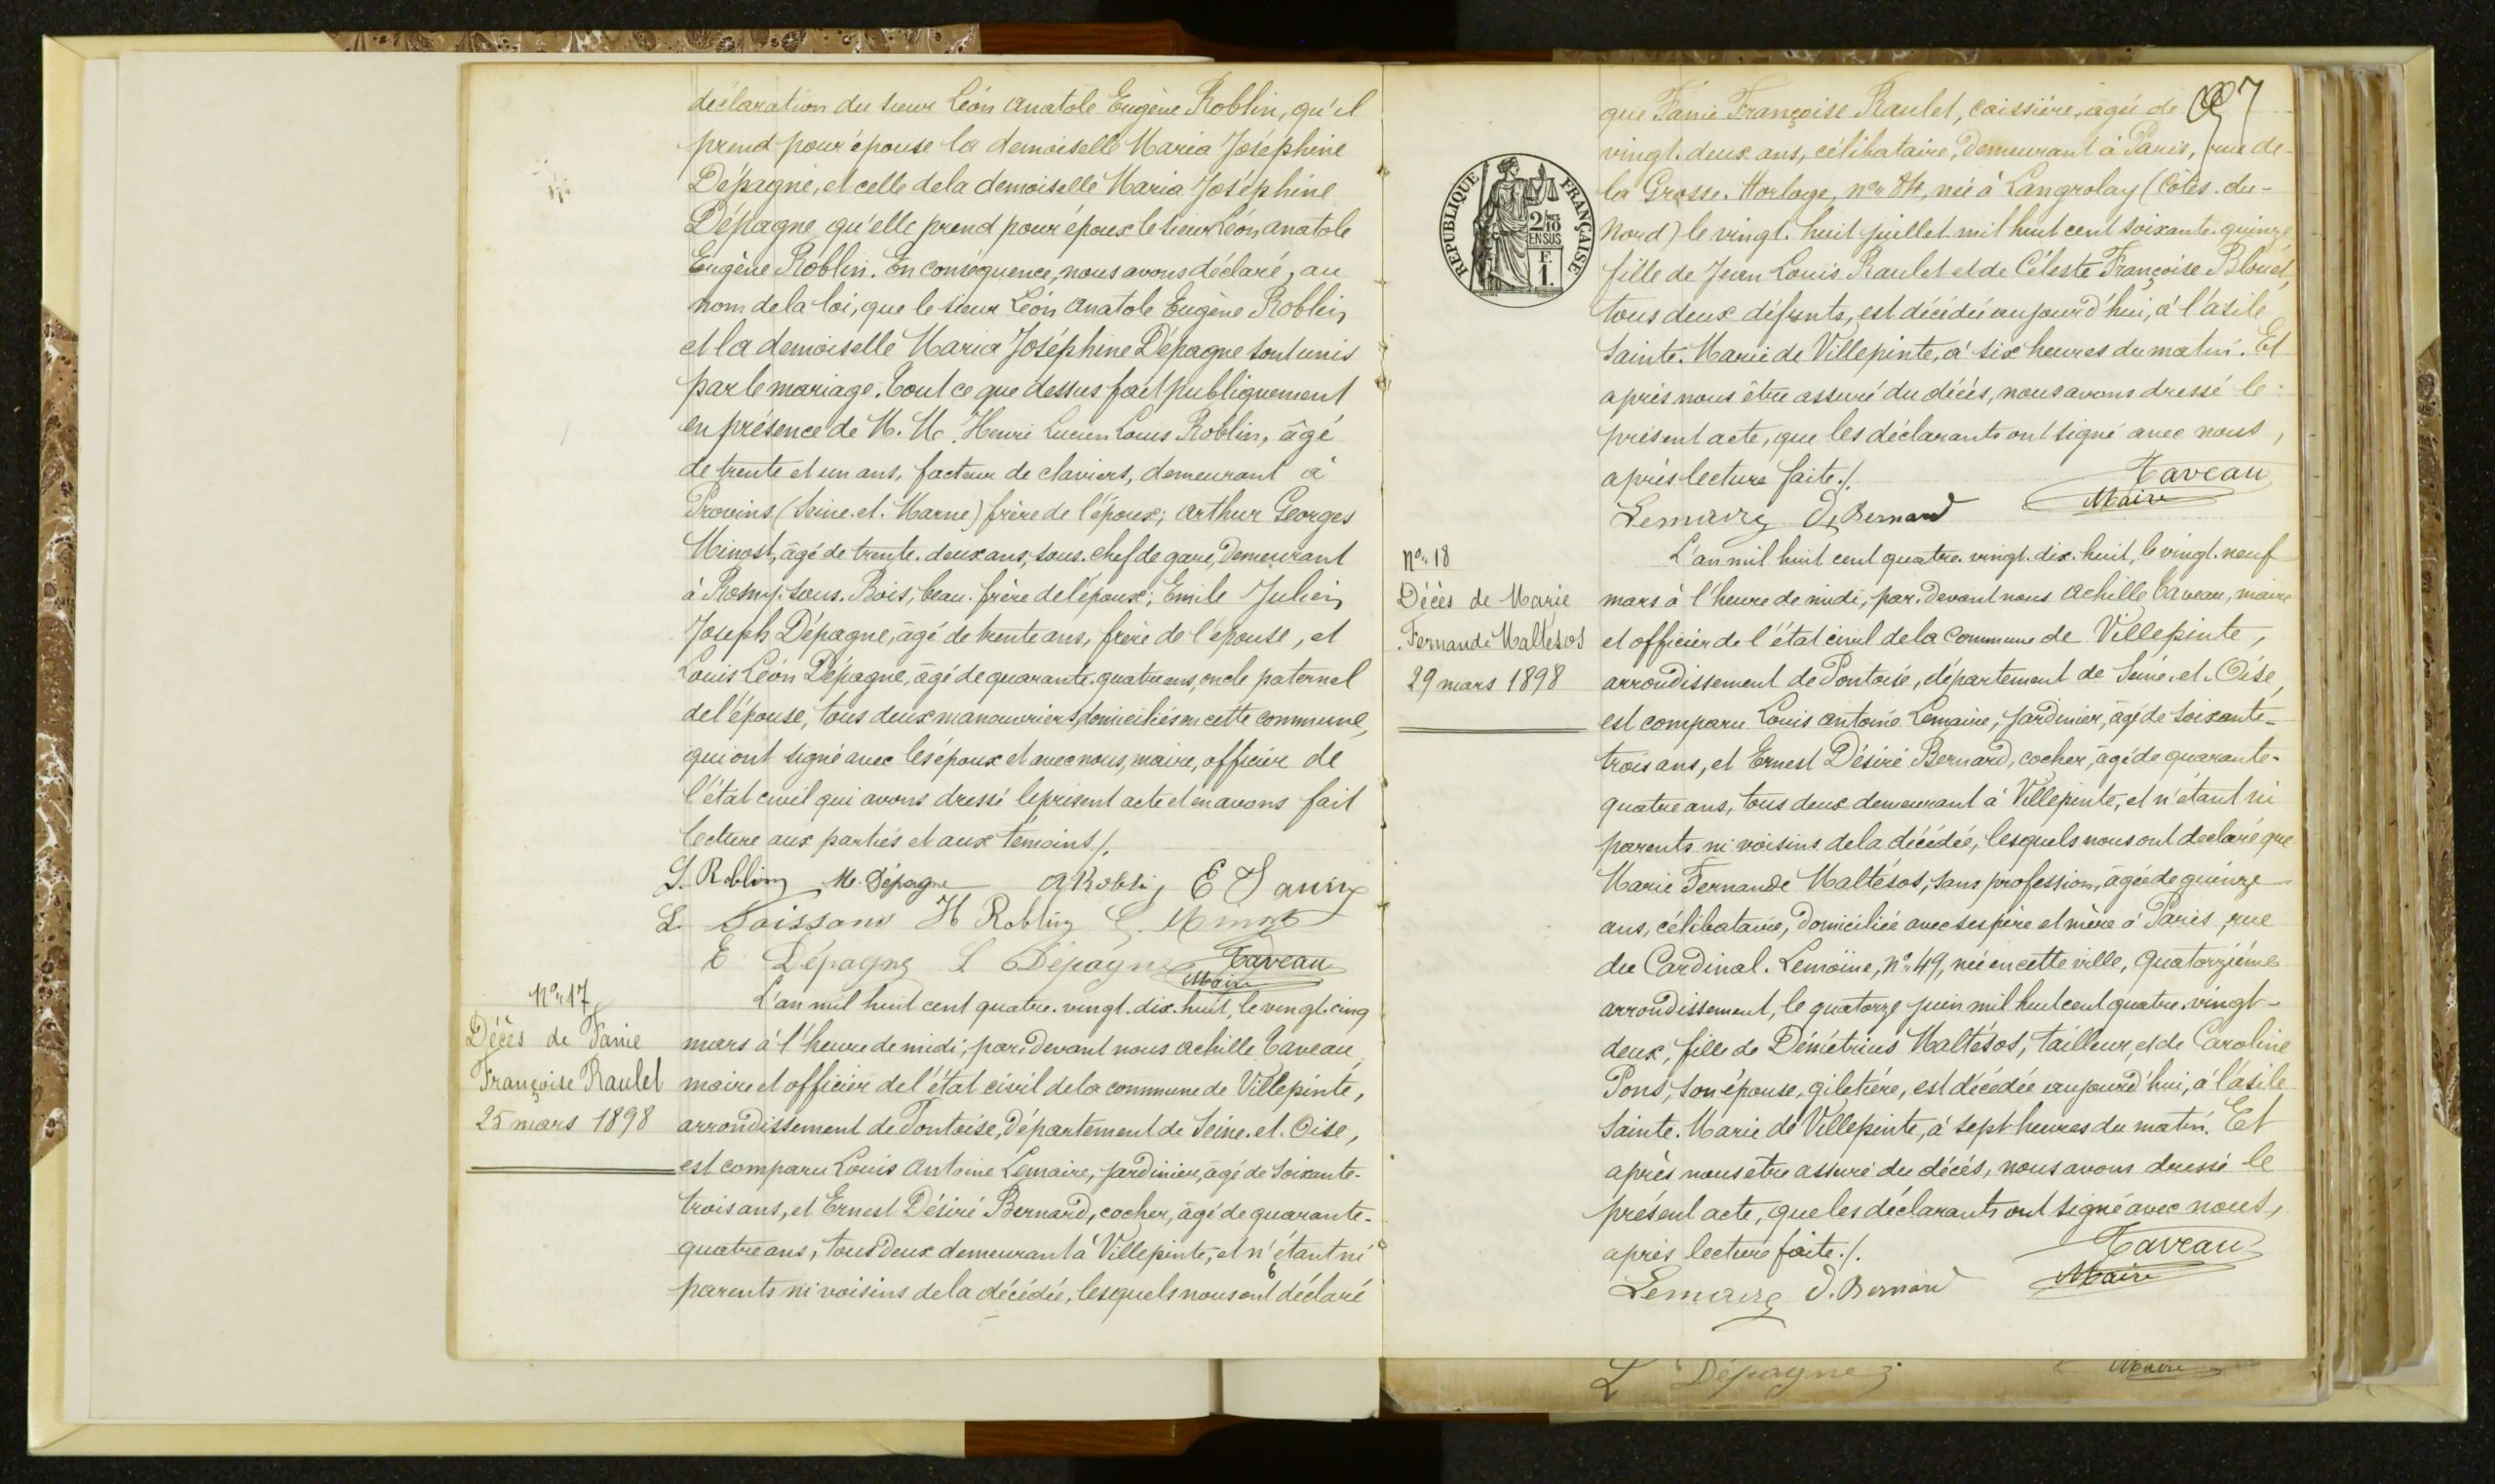 déclaration du sieur Léon Anatole Eugène Roblin, qu'il
prend pour épouse la demoiselle Maria Joséphine
Dépagne, et celle de la demoiselle Maria Joséphine
Dépagne qu'elle prend pour époux le sieur Léon Anatole
Eugène Roblin. En conséquence, nous avons déclaré, au
nom de la loi, que le sieur Léon Anatole Eugène Roblin
et la demoiselle Maria Joséphine Dépagne sont unis
par le mariage. Tout ce que dessus fait publiquement
en présence de M. M. Henri Lucien Louis Roblin, âgé
de trente et un ans, facteur de claviers, demeurant à
Provins (Seine-et-Marne) frère de l'époux; Arthur Georges
Minost, âgé de trente-deux ans, sous-chef de gare, demeurant
à Rosny-sous-Bois, beau-frère de l'époux; Emile Julien
Joseph Dépagne, âgé de trente ans, frère de l'épouse, et
Louis Léon Dépagne, âgé de quarante-quatre ans, oncle paternel
de l'épouse, tous deux manouvriers, domiciliés en cette commune,
qui ont signé avec les époux et avec nous, maire, officier de
l'état civil qui avons dressé le présent acte et en avons fait
lecture aux parties et aux témoins ./.
L. Roblin M. Dépagne A Roblin E
L. H Roblin G. Minost
E Dépagne L Dépagne Taveau
Maire
N° 17
Décès de Fanie
Françoise Raulet
25 mars 1898
L'an mil huit cent quatre-vingt-dix-huit, le vingt-cinq
mars à l'heure de midi; par-devant nous Achille Taveau,
maire et officier de l'état civil de la commune de Villepinte,
arrondissement de Pontoise, département de Seine-et-Oise,
est comparu Louis Antoine Lemaire, jardinier, âgé de soixante-
trois ans, et Ernest Désiré Bernard, cocher, âgé de quarante-
quatre ans, tous deux demeurant à Villepinte, et n'étant ni
parents ni voisins de la décédée, lesquels nous ont déclaré
6
7
REPUBLIQUE FRANÇAISE
2/10
EN SUS
F.
1.
que Fanie Françoise Raulet, caissière, âgée de
vingt-deux ans, célibataire, demeurant à Paris, rue de
la Grosse-Horloge, n° 84, née à Langrolay (Côtes-du-
Nord) le vingt-huit juillet mil huit cent soixante-quinze
fille de Jean Louis Raulet et de Céleste Françoise Blouet,
tous deux défunts, est décédée aujourd'hui, à l'asile
Sainte-Marie de Villepinte, à six heures du matin. Et
après nous être assuré du décès, nous avons dressé le
présent acte, que les déclarants ont signé avec nous,
après lecture faite ./.
Taveau
Maire
Lemaire D. Bernard
N° 18
Décès de Marie
Fernande Maltésos
29 mars 1898
L'an mil huit cent quatre-vingt-dix-huit, le vingt-neuf
mars à l'heure de midi, par-devant nous Achille Taveau, maire
et officier de l'état civil de la commune de Villepinte,
arrondissement de Pontoise, département de Seine-et-Oise,
est comparu Louis Antoine Lemaire, jardinier, âgé de soixante-
trois ans, et Ernest Désiré Bernard, cocher, âgé de quarante-
quatre ans, tous deux demeurant à Villepinte, et n'étant ni
parents ni voisins de la décédée, lesquels nous ont declaré que
Marie Fernande Maltésos, sans profession, âgée de quinze
ans, célibataire, domiciliée avec ses père et mère à Paris, rue
du Cardinal-Lemoine, n° 49, née en cette ville, quatorzième
arrondissement, le quatorze juin mil huit cent quatre-vingt-
deux, fille de Démétrius Maltésos, tailleur, et de Caroline
Pons, son épouse, giletière, est décédée aujourd'hui, à l'asile
Sainte-Marie de Villepinte, à sept heures du matin. Et
après nous être assuré du décès, nous avons dressé le
présent acte, que les déclarants ont signé avec nous,
après lecture faite ./.
Taveau
Maire
Lemaire D. Bernard
L Dépagne
Maire